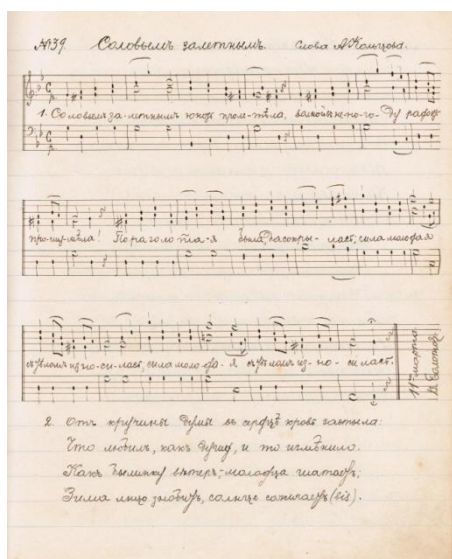 №39. Соловьемъ залетнымъ. Слова А. Кольцова.
1. Соловьемъ за-летнымъ юность проле-тѣла, волной въ не-по-го-ду радость
про-шу-мѣла! Пора золота-я была, да сокры-ласъ, сила молодая
съ тѣломъ износи-ласъ, сила молода-я съ тѣломъ из-но-силасъ.
11го марта
2. Отъ кручины думы въ сердцѣ кровь застыла:
Что любилъ, какъ душу, и то измѣнило.
Какъ былинку вѣтеръ, молодца шатаетъ;
Зима лицо знобитъ, солнце сожигаетъ (bis).